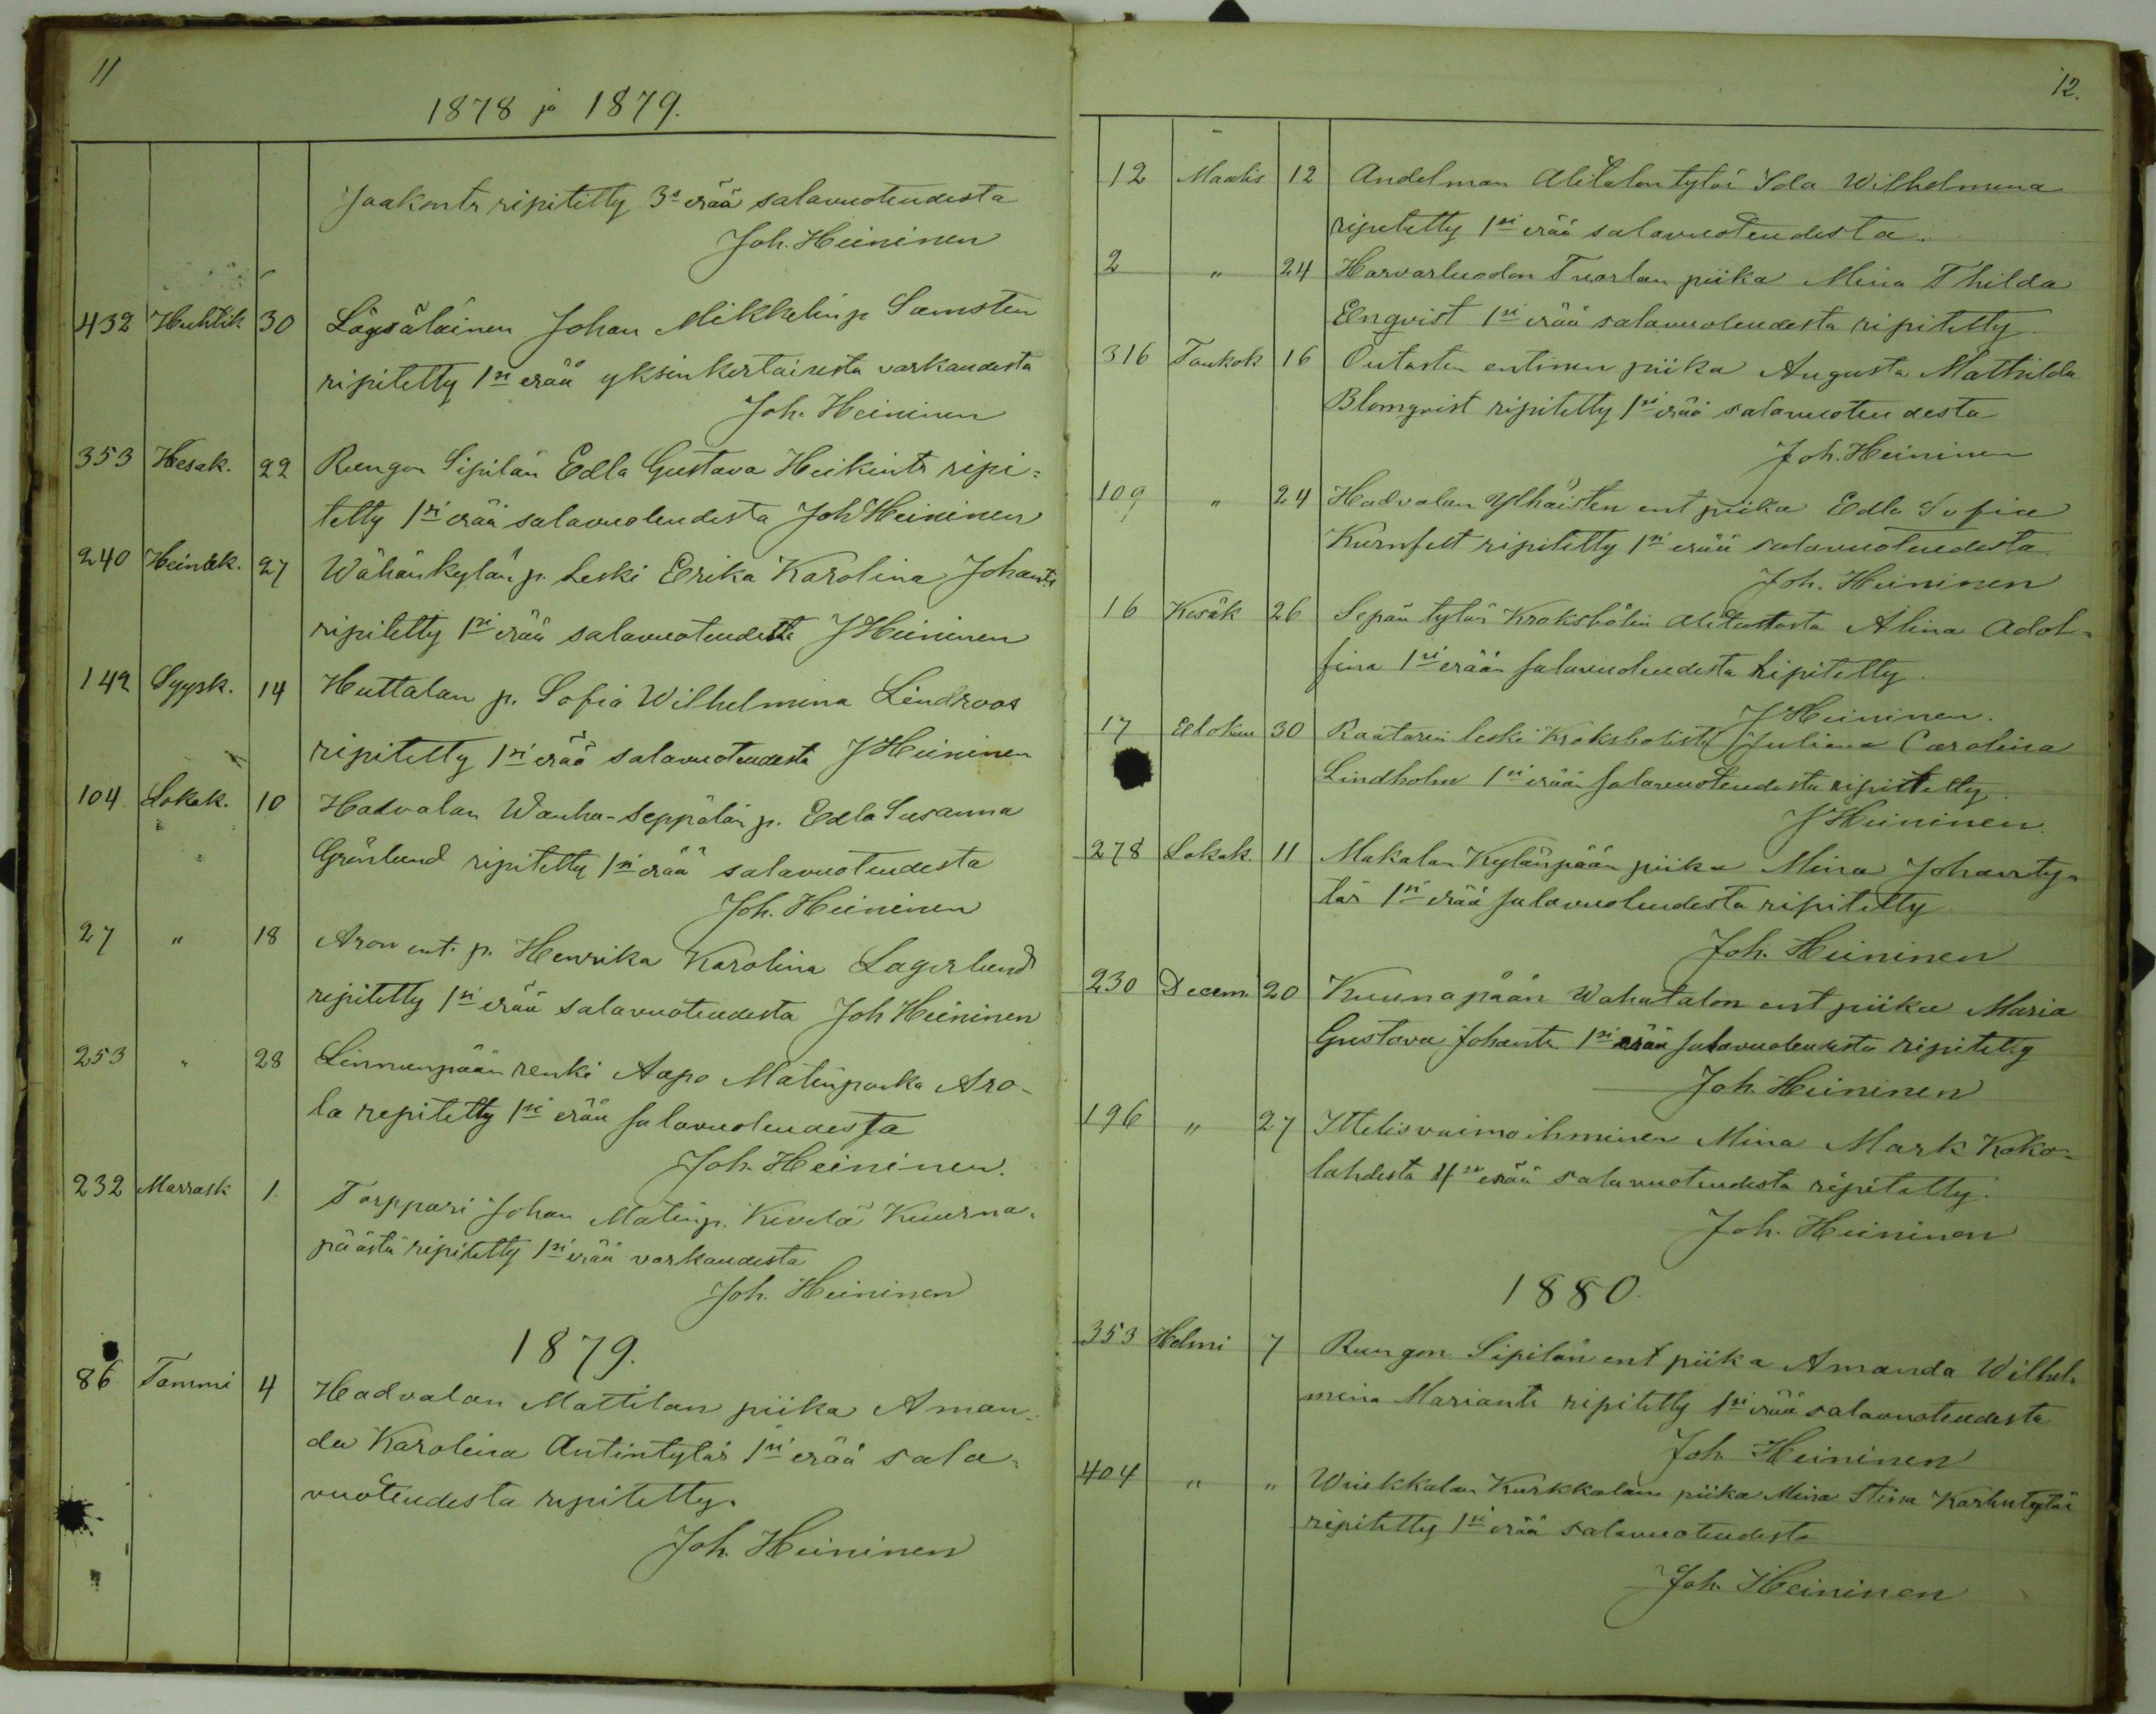 11
1878 ja 1879.
Jaakonts ripitetty 3s erää salavuoteudesta
Joh. Heininen
432 Huhtik 30 Johan Mikkelinp Samsten
ripitetty 1si erää yksinkertaisesta varkaudesta
Joh. Heininen
353 Kesak. 22 Rungon Sipilän Edla Gustava Heikints ripi=
tetty 1si erää salavuoteudesta Joh Heininen
240 Heinäk. 27 Wähänkylän p. Leski Erika Karolina Johants
ripitetty 1si erää salavuoteudesta J Heininen
142 Syysk. 14 Huttalan p. Sofia Wilhelmina Lindroos
ripitetty 1si erää salavuoteudesta J Heininen
104 Lokak. 10 Hadvalan Wanha-Seppälän p. Edla Susanna
Grönlund ripitetty 1si erää salavuoteudesta
Joh. Heininen
27 " 18 Aron ent. p. Henrika Karolina Lagerlund
ripitetty 1si erää salavuoteudesta Joh Heininen
253 " 28 Linnunpään renki Aapo Matinpoika Aro-
la repitetty 1si erää salavuoteudesta
Joh. Heininen.
232 Marrask 1. Torppari Johan Matinp. Kivelä Kuurna-
päästä ripitetty 1si erää varkaudesta
Joh. Heininen
1879.
86 Tammi 4 Hadvalan Mattilan piika Aman-
da Karolina Antintytär 1si erää sala-
vuoteudesta ripitetty.
Joh. Heininen
12.
12 Maalis 12 Andelman Alitalon tytär Ida Wilhelmina
ripitetty 1si erää salavuoteudesta.
2 " 24 Harvarluodon Tuorlan piika Mina Thilda
Enqvist 1si erää salavuoteudesta ripitetty
316 Toukok 16 entinen piika Augusta Mathilda
Blomqvist ripitetty 1si erää salavuoteudesta
Joh. Heininen
109 " 24 Hadvalan Ylhäisten ent piika Edla Sofia
Kurnfelt ripitetty 1si erää salavuoteudesta
Joh. Heininen
16 Kesäk 26 Sepän tytär Kroksbölin Alitalosta Alina Adol-
fina 1si erään salavuoteudesta ripitetty.
J Heininen.
17 Elokuu 30 Räätärin leski Kroksbolista Juliana Carolina
Lindholm 1si erään salavuoteudesta ripitetty.
J Heininen.
278 Lokak. 11 Makalan Kylänpään piika Mina Johanty-
tär 1si erää salavuoteudesta ripitetty
Joh. Heininen
230 Decem. 20 Kuurnapään Wahatalon ent piika Maria
Gustava Johants 1si erää salavuoteudesta ripitetty
Joh. Heininen
196 " 27 Ittelisvaimoihminen Mina Mark Koko-
lahdesta 4s erää salavuoteudesta ripitetty.
Joh. Heininen
1880.
353 Helmi 7 Rungon Sipilän ent piika Amanda Wilhel-
mina Mariants ripitetty 1si erää salavuoteudesta
Joh Heininen
404 " " Kurkkalan piika Mina Stina Karlentytär
ripitetty 1si erää salavuoteudesta
Joh. Heininen